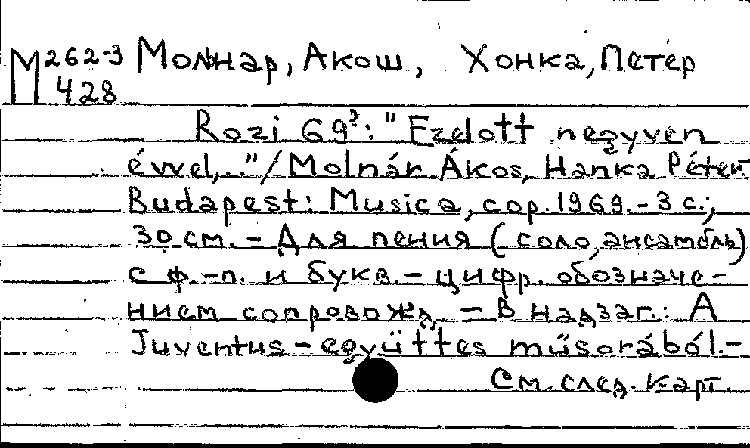 М 262-3 Молнар, Акош, Хонка, Петер
428
Rozi 69?: "Ezelott negyven
évvel,.."/Molnár Ákos, Hanka Péter.
Budapest: Musica, cop. 1969.-3 с.;
30 см. - Для пения (соло, ансамбль)
с ф.-п. и букв.-цифр. обозначе-
нием сопровожд. - В надзаг.: А
Juventus-együttes műsorából.-
См. след. карт.